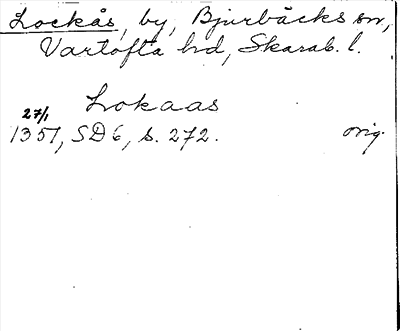 Lockås, by, Bjurbäcks sn,
Vartofta hd, Skarab. l.
Lokaas
27/1
1351, SD 6, s. 272. orig.